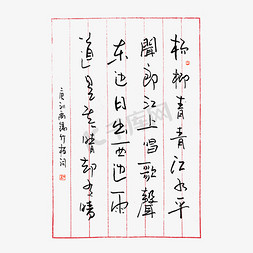 杨柳青青江水平
聞郎江上唱歌聲
东边日出西边雨
道是无晴却有晴
唐刘禹锡竹枝词